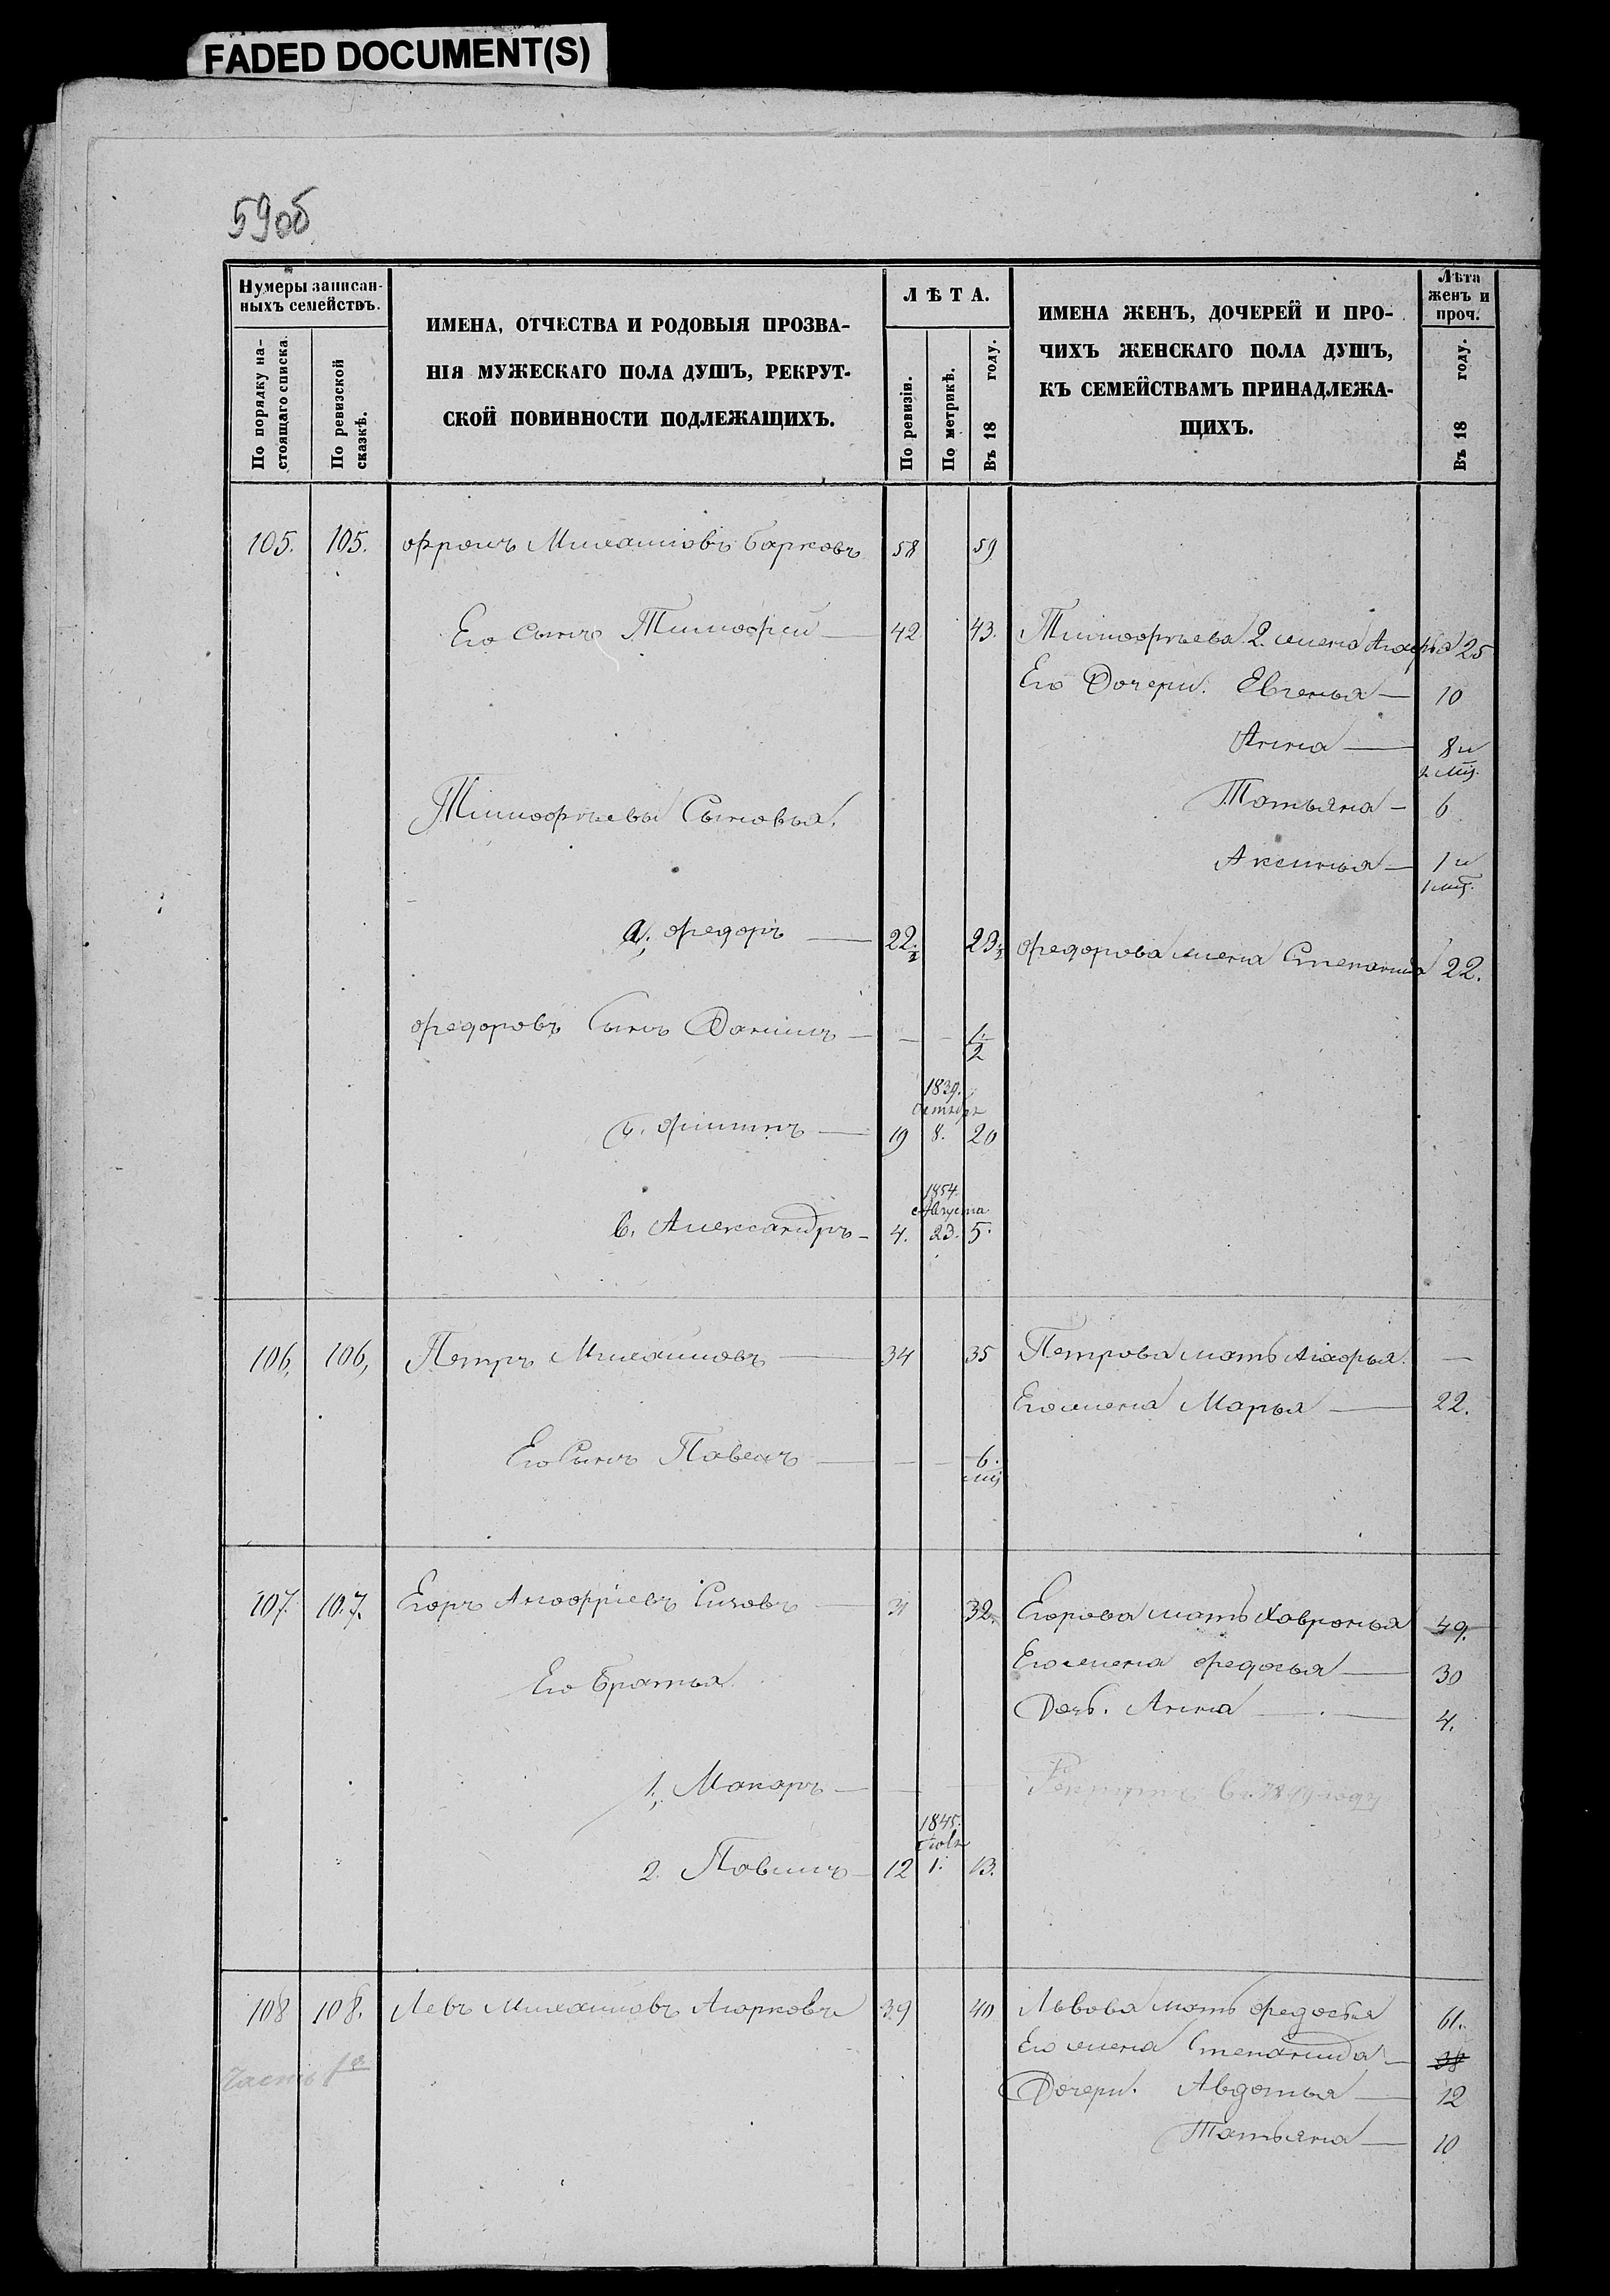 FADED DOCUMENT(S)
59об
Нумеры записан-
ныхъ семействъ.
По порядку на-
стоящаго списка.
По ревизской
сказкѣ.
ИМЕНА, ОТЧЕСТВА И РОДОВЫЯ ПРОЗВА-
НІЯ МУЖЕСКАГО ПОЛА ДУШЪ, РЕКРУТ-
СКОЙ ПОВИННОСТИ ПОДЛЕЖАЩИХЪ.
ЛѢТА.
По ревизіи.
По метрикѣ.
Въ 18 году.
ИМЕНА ЖЕНЪ, ДОЧЕРЕЙ И ПРО-
ЧИХЪ ЖЕНСКАГО ПОЛА ДУШЪ,
КЪ СЕМЕЙСТВАМЪ ПРИНАДЛЕЖА-
ЩИХЪ.
Лѣта
женъ и
проч.
Въ 18 году.
105. 105. Фролъ Михаиловъ Барковъ 58 59
Его Сынъ Тимофей — 42 43. Тимофѣева 2. жена Агафья 25
Его Дочери. Евгенья — 10
Анна — 8 и
2. мѣс.
Татьяна — 6
Тимофѣевы Сыновья.
Аксинья — 1 и
1 мѣс.
а, Федоръ — 22. 23. Федорова жена Степанида 22.
Федоровъ Сынъ Данилъ — — — 1/2
1839.
Октября
б. Филипъ — 19 8. 20
1854.
Августа
в. Александръ — 4. 23. 5.
106. 106, Петръ Михаиловъ — 34 35 Петрова мать Агафья. —
Его жена Марья — 22.
Его Сынъ Павелъ — — — 6.
мѣс
107. 107. Егоръ Ануфріевъ Сизовъ — 31 32. Егорова мать Хавронья 49.
Его жена Федосья — 30
Его Братья
Дочь. Анна — 4.
1, Макаръ — — —
1845.
Іюля
2. Павилъ — 12 1. 13.
108 108. Левъ Михаиловъ 39 40 Львова мать Федосья 61.
Его жена Степанида — 38
Дочери. Авдотья — 12
Татьяна — 10
Часть 1я